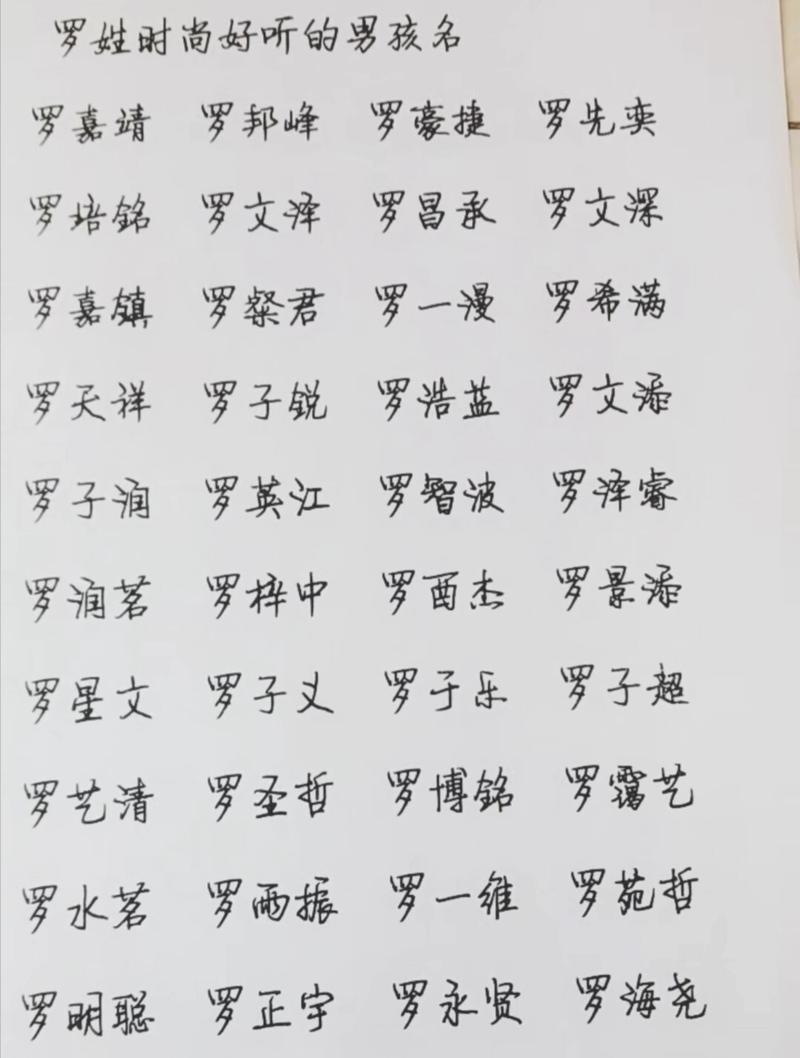 罗姓时尚好听的男孩名
罗嘉靖 罗邦峰 罗豪捷 罗先奕
罗培铭 罗文泽 罗昌承 罗文深
罗嘉镇 罗粲君 罗一漫 罗希满
罗天祥 罗子锐 罗浩蓝 罗文添
罗子润 罗英江 罗智波 罗泽睿
罗润茗 罗梓中 罗酉杰 罗景添
罗星文 罗子义 罗于乐 罗子超
罗艺清 罗圣哲 罗博铭 罗霭艺
罗水茗 罗雨振 罗一维 罗苑哲
罗明聪 罗正宇 罗永贤 罗海尧